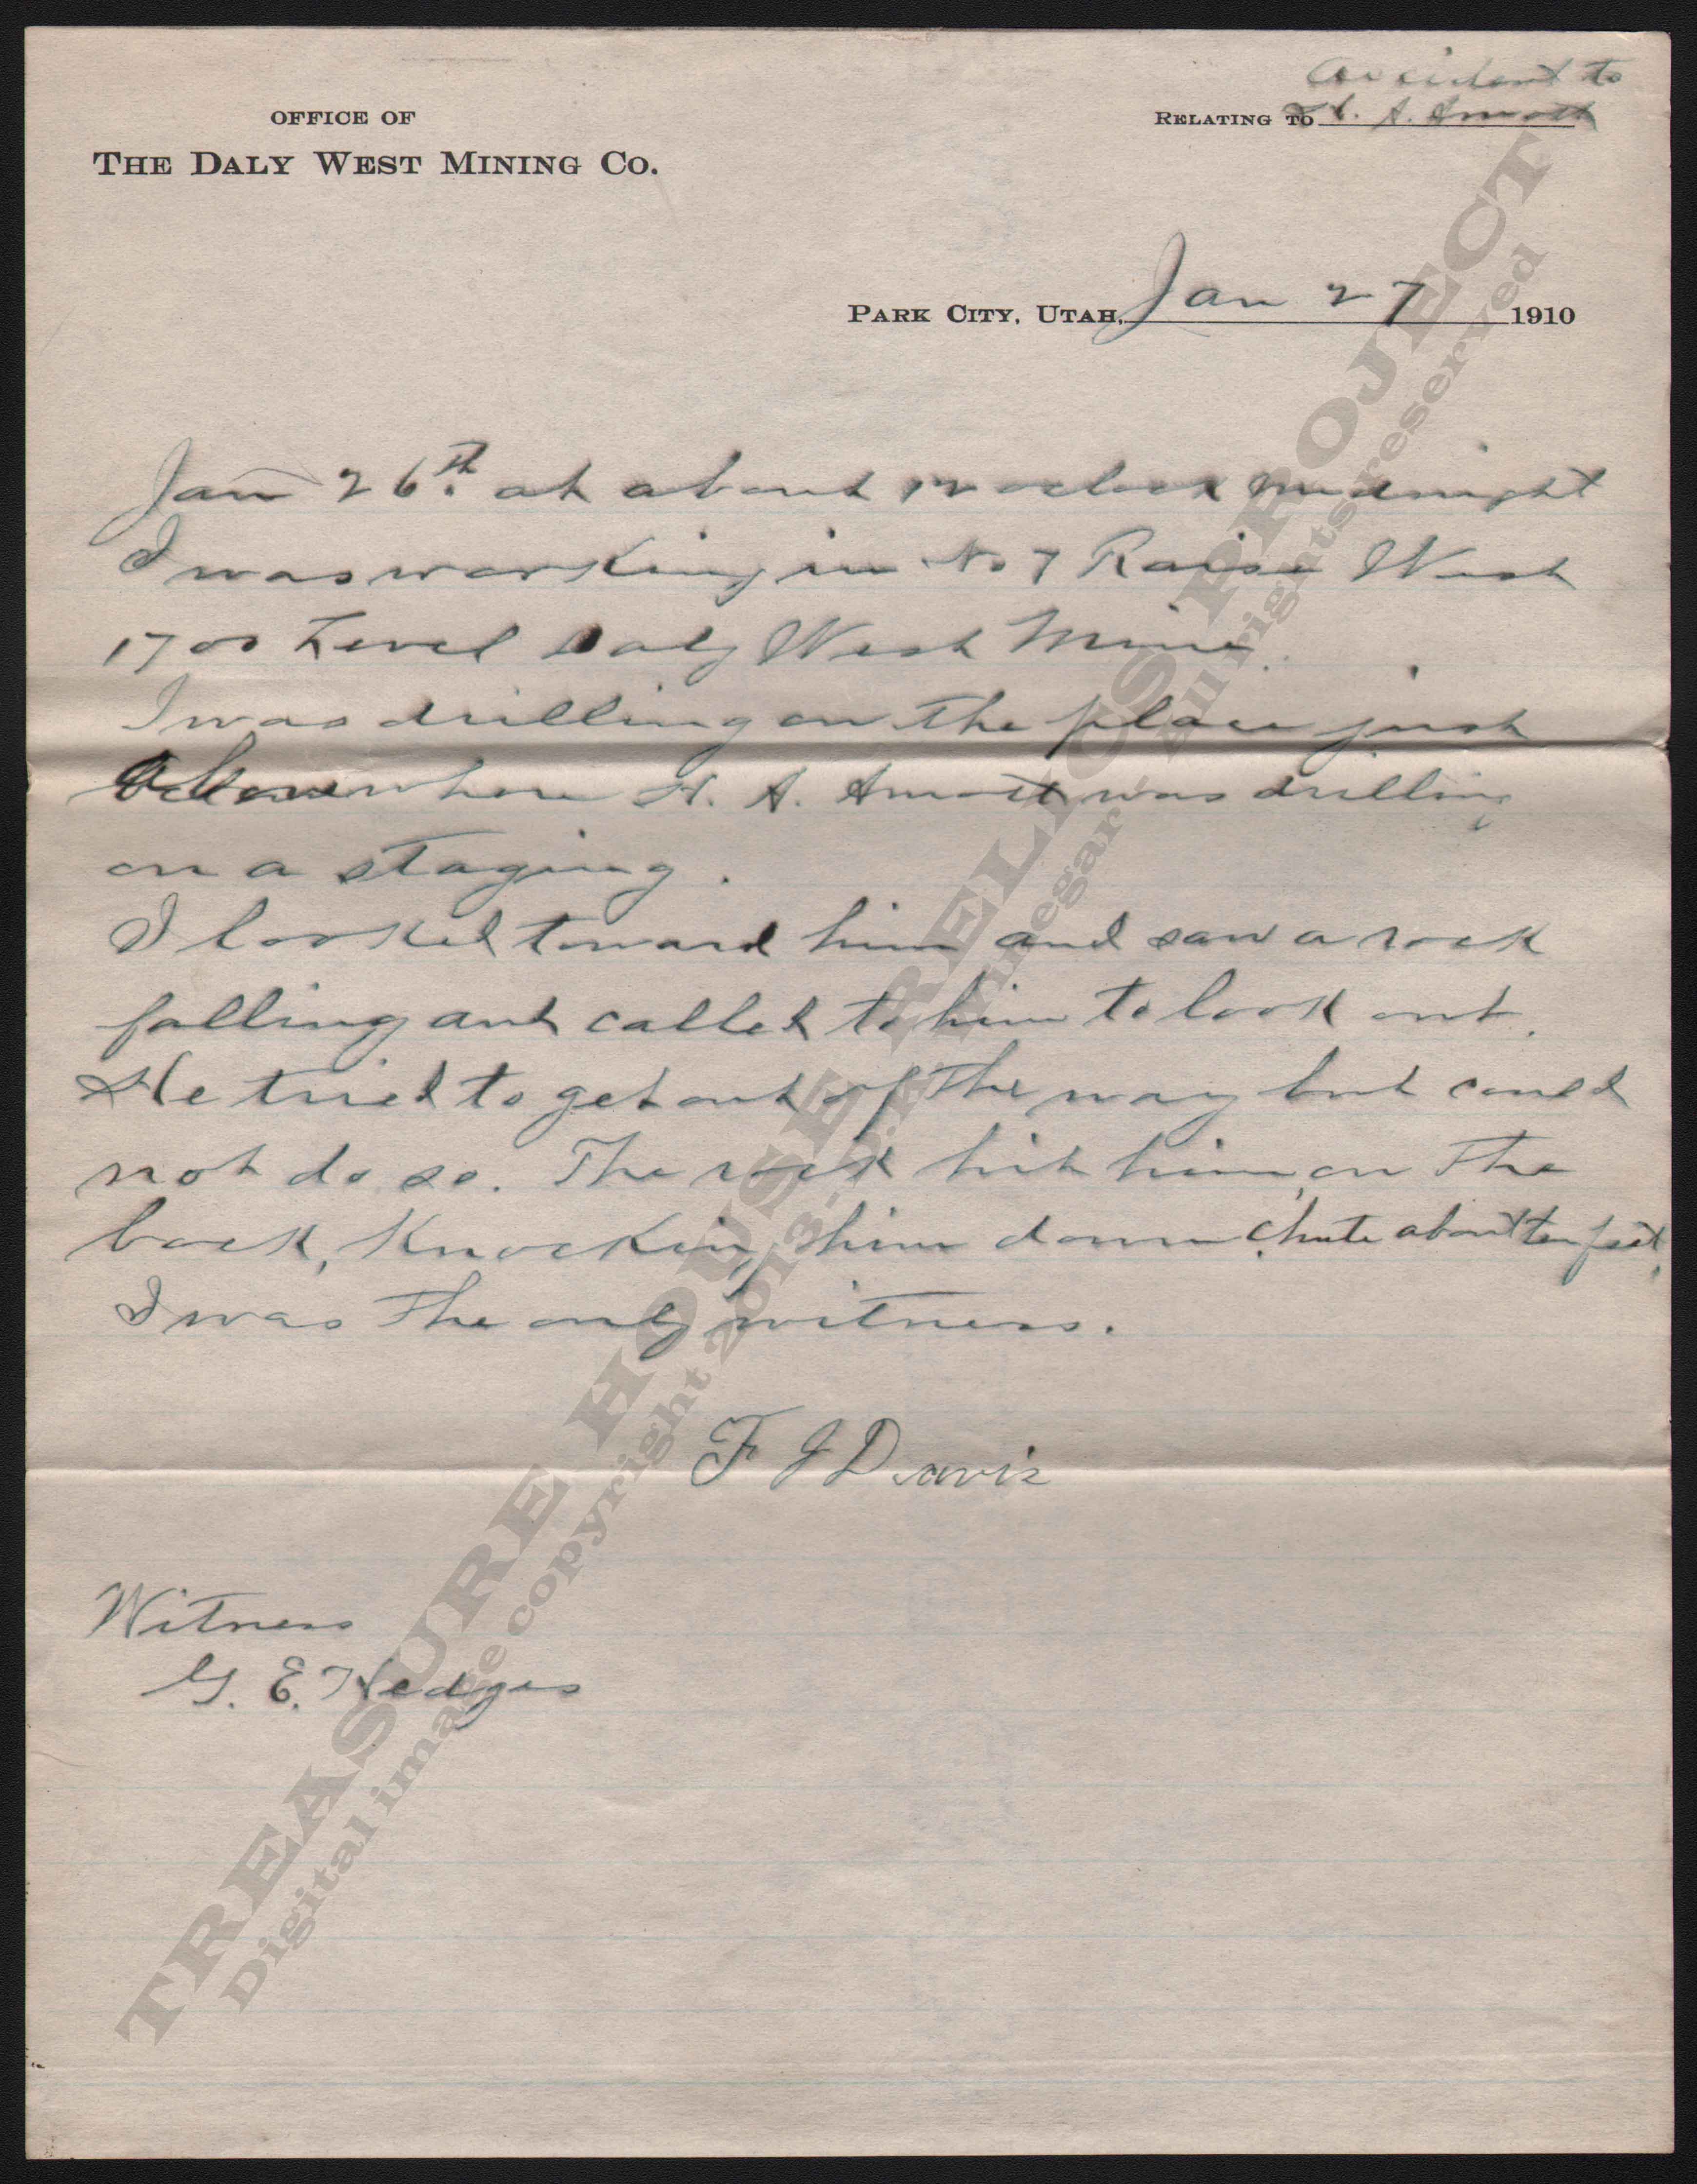 accident to
OFFICE OF
RELATING TO H. A. Amott
THE DALY WEST MINING CO.
PARK CITY, UTAH, Jan 27 1910
Jan 26th. at about 12 oclock midnight
I was working in No 7 Raise West
1700 Level Daly West Mine.
I was drilling on the place just
where H. A. Amott was drilling
on a staging.
I looked toward him and saw a rock
falling and called to him to look out.
He tried to get out of the way but could
not do so. The rock hit him on the
back, knocking him down chute about ten feet.
I was the only witness.
F J Davis
Witness
G. E. Hedges
TREASURE HOUSE RELICS PROJECT
Digital image copyright 2013 - D.K. Vinegar - All rights reserved